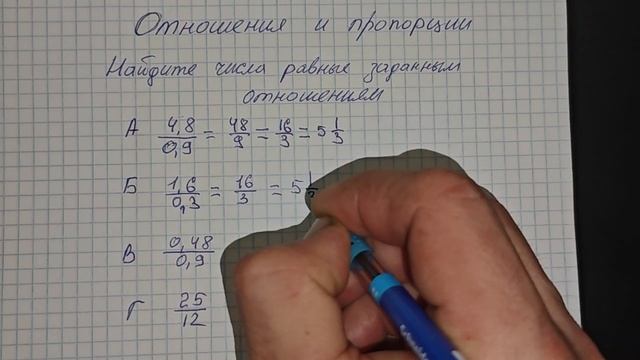 Отношения и пропорции
Найдите числа равные заданным
отношениям
А 4,8/0,9 = 48/9 = 16/3 = 5 1/3
Б 1,6/0,3 = 16/3 = 5 1/
В 0,48/0,9
Г 25/12